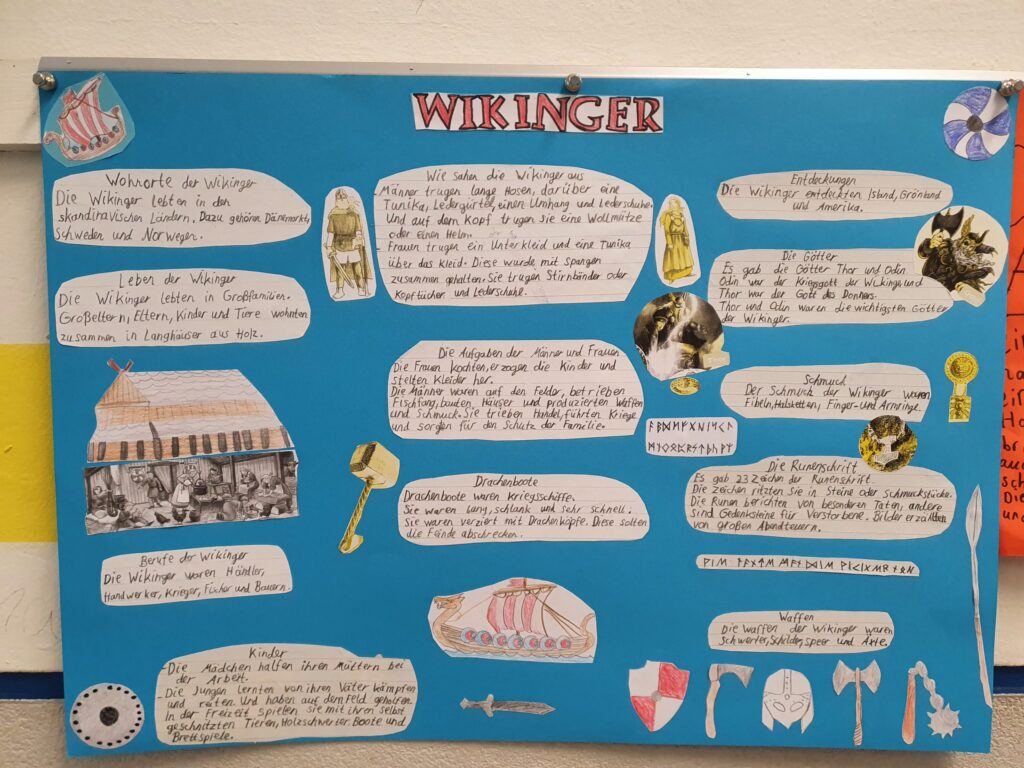 WIKINGER
Wohnorte der Wikinger
Die Wikinger lebten in den
skandinavischen Ländern. Dazu gehören Dänemark,
Schweden und Norwegen.
Leben der Wikinger
Die Wikinger lebten in Großfamilien.
Großeltern, Eltern, Kinder und Tiere wohnten
zusammen in Langhäuser aus Holz.
Berufe der Wikinger
Die Wikinger waren Händler,
Handwerker, Krieger, Fischer und Bauern.
Kinder
- Die Mädchen halfen ihren Müttern bei
der Arbeit.
- Die Jungen lernten von ihren Väter kämpfen
und reiten. Und haben auf dem Feld geholfen.
In der Freizeit spielen sie mit ihren selbst
geschnitzten Tieren, Holzschwerter Boote und
Brettspiele.
Wie sahen die Wikinger aus
- Männer trugen lange Hosen, darüber eine
Tunika, Ledergürtel, einen Umhang und Lederschuhe.
Und auf dem Kopf trugen sie eine Wollmütze
oder einen Helm.
- Frauen trugen ein Unterkleid und eine Tunika
über das kleid. Diese wurde mit spangen
zusammen gehalten. Sie trugen Stirnbänder oder
Kopftücher und Lederschuhe.
Die Aufgaben der Männer und Frauen
Die Frauen kochten, erzogen die Kinder und
stelten Kleider her.
Die Männer waren auf den Felder, betrieben
Fischfang, bauten Häuser und produzierten Waffen
und Schmuck. Sie trieben Handel, führten Kriege
und sorgten für den Schutz der Familie.
Drachenboote
Drachenboote waren Kriegsschiffe.
Sie waren Lang, schlank und sehr schnell.
Sie waren verziert mit Drachenköpfe. Diese solten
die Feinde abschrecken.
Entdeckungen
Die Wikinger entdeckten Island, Grönland
und Amerika.
Die Götter
Es gab die Götter Thor und Odin.
Odin war der Kriegsgott der Wikinger und
Thor war der Gott des Donners.
Thor und Odin waren die wichtigsten Götter
der Wikinger.
Schmuck
Der Schmuck der Wikinger waren
Fibeln, Halsketten, Finger- und Armringe.
Die Runenschrift
Es gab 23 Zeichen der Runenshrift.
Die Zeichen ritzten sie in Steine oder schmuckstücke.
Die Runen berichten von besonderen Taten, andere
sind Gedenksteine für Verstorbene. Bilder erzählten
von großen Abendteuern.
Waffen
Die Waffen der Wikinger waren
Schwerter, Schilder, speer und Äxte.